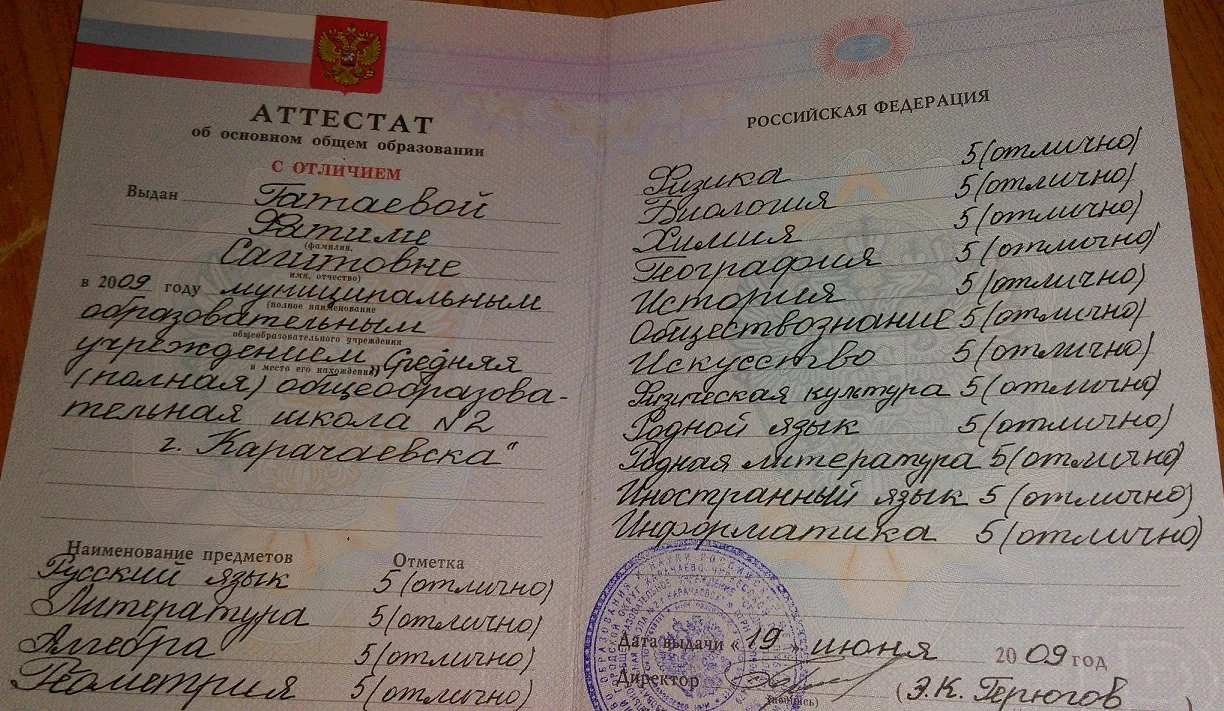 АТТЕСТАТ
об основном общем образовании
С ОТЛИЧИЕМ
Выдан Гатаевой
Фатиме
(фамилия,
Сагитовне
имя, отчество)
в 2009 году муниципальным
(полное наименование
образовательным
общеобразовательного учреждения
учреждением „Средняя
и место его нахождения)
(полная) общеобразова-
тельная школа №2
г. Карачаевска“
Наименование предметов Отметка
Русский язык 5(отлично)
Литература 5(отлично)
Алгебра 5(отлично)
Геометрия 5(отлично)
РОССИЙСКАЯ ФЕДЕРАЦИЯ
Физика 5(отлично)
Биология 5(отлично)
Химия 5(отлично)
География 5(отлично)
История 5(отлично)
Обществознание 5(отлично)
Искусство 5(отлично)
Физическая культура 5(отлично)
Родной язык 5(отлично)
Родная литература 5(отлично)
Иностранный язык 5(отлично)
Информатика 5(отлично)
Дата выдачи «19» июня 2009 год
Директор (Э.К. Герюгов)
(подпись)